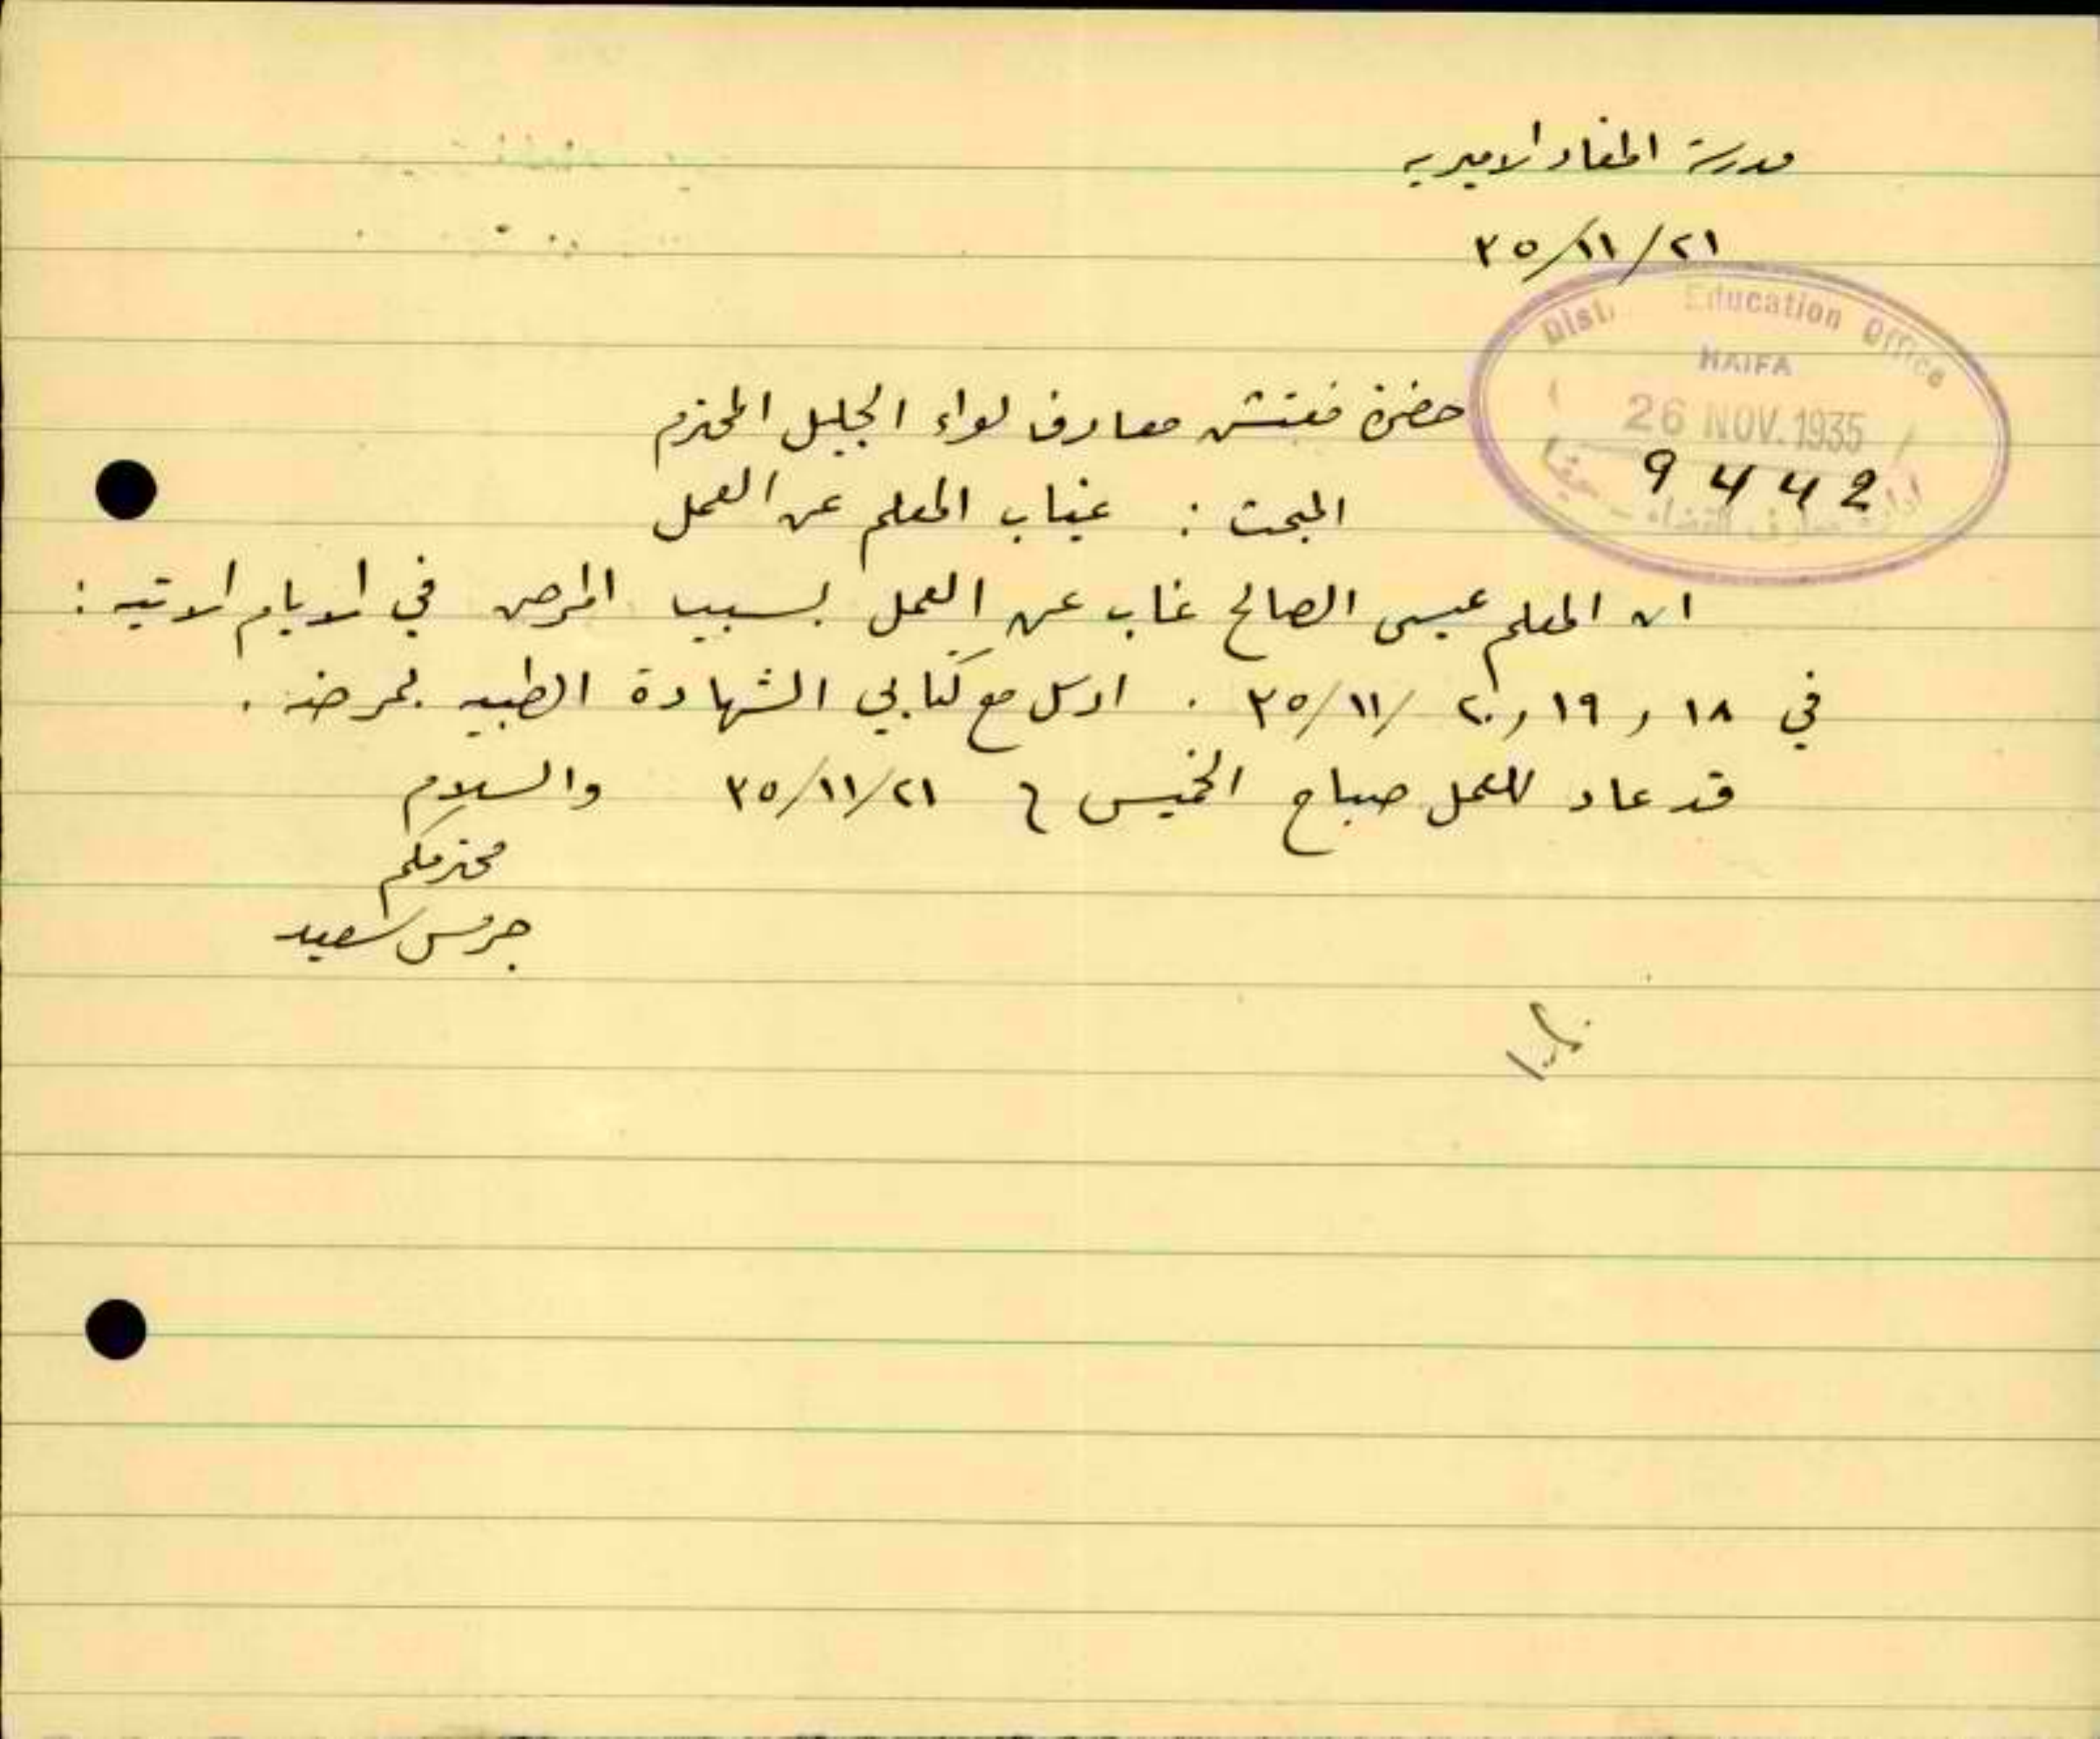 مدرسة المغار الاميريه
٢١/١١/٣٥
Education Office
HAIFA
26 NOV. 1935
9442
حضرة مفتش معارف لواء الجليل المحترم
المبحث : غياب المعلم عن العمل
ان المعلم عيسى الصالح غاب عن العمل بسبب المرض في الايام الاتيه :
في ١٨ و ١٩ و ٢٠ /١١/٣٥ . ارسل مع كتابي الشهادة الطبيه لمرضه .
قد عاد للعمل صباح الخميس في ٢١/١١/٣٥ والسلام
محترمكم
جرس سعيد